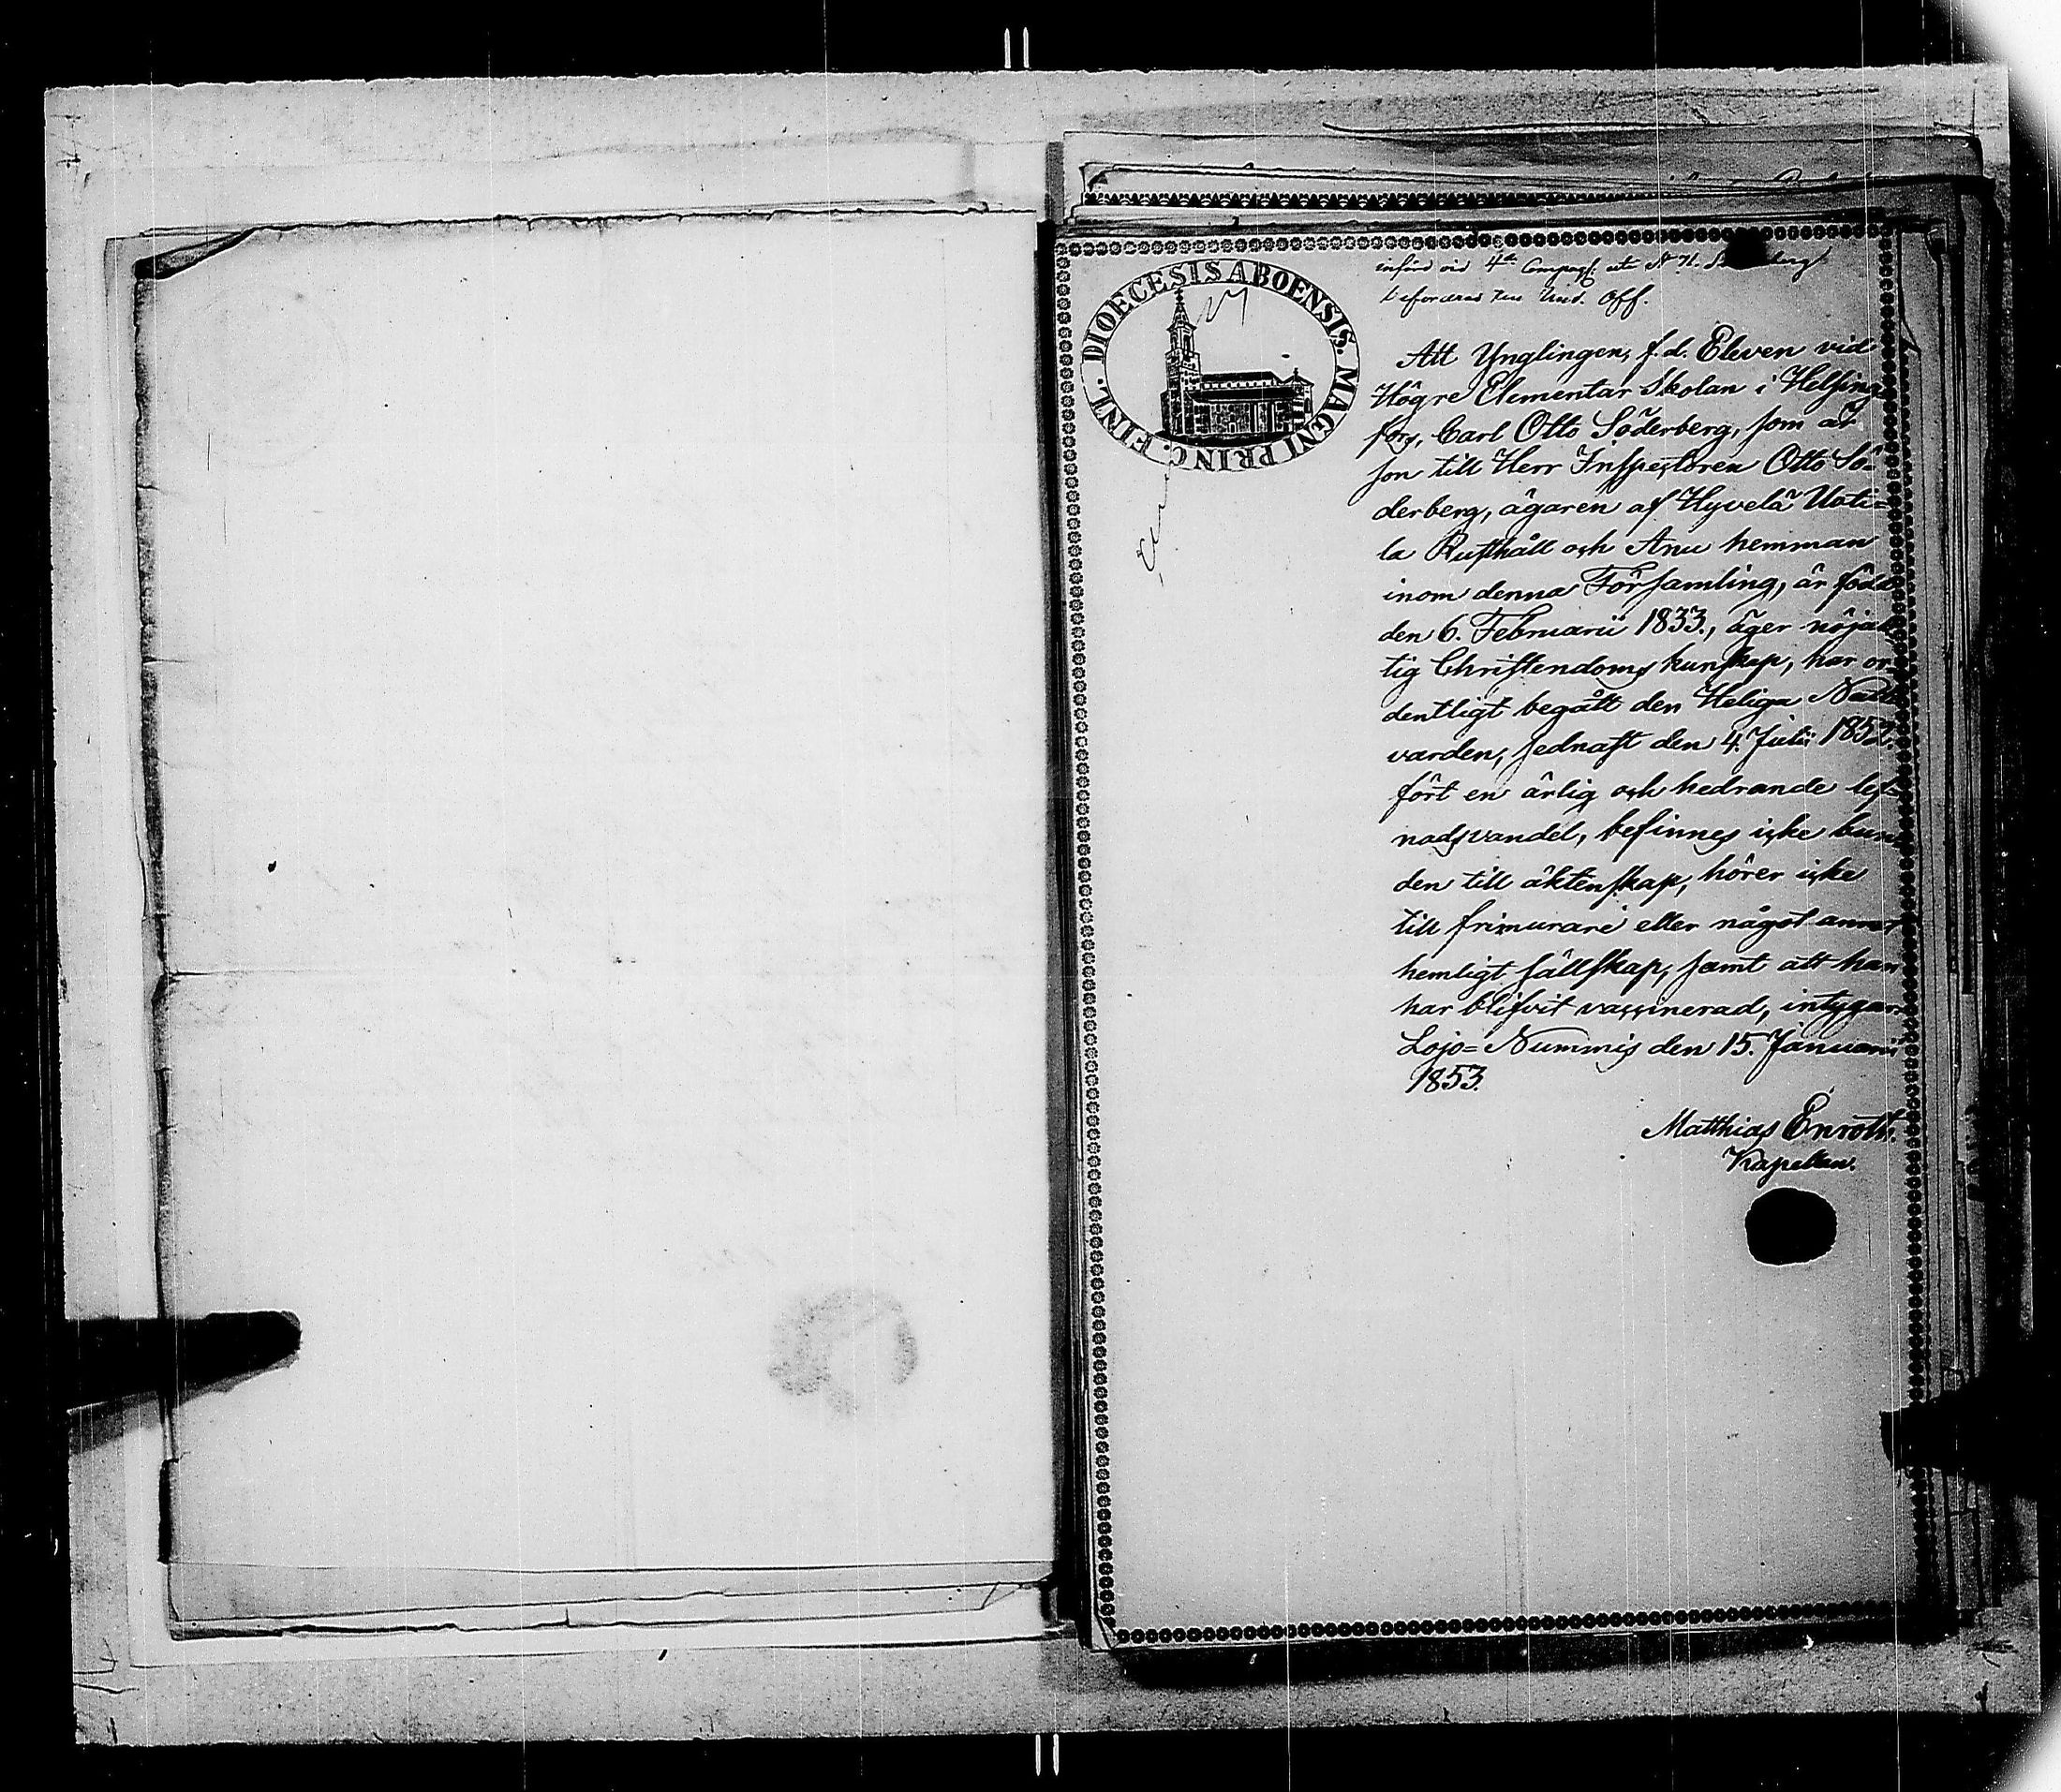 införd vid 4de Compagt: utr No 71.
befordras till Und. Off.
DIOECESIS ABOENSIS. MAGNI PRINC. FINL.
Att Ynglingen, f.d. Eleven vid
Högre Elementar Skolan i Helsing
fors, Carl Otto Söderberg, som är
son till Herr Inspectoren Otto Sö-
derberg, ägaren af Hyvelä Uoti=
la Rusthåll och Anu hemman
inom denna Församling, är född
den 6. Februarii 1833., äger nöjak
tig Christendoms kunskap, har or
dentligt begått den Heliga Natt
varden, sednast den 4. Julii 1852.
fört en ärlig och hedrande lef-
nadsvandel, befinnes icke bun
den till äktenskap, hörer icke
till frimurare eller något annat
hemligt sällskap, samt att han
har blifvit vaccinerad, intygar
Lojo= Nummis den 15. Januarii
1853.
Matthias Enroth.
Kapellan.